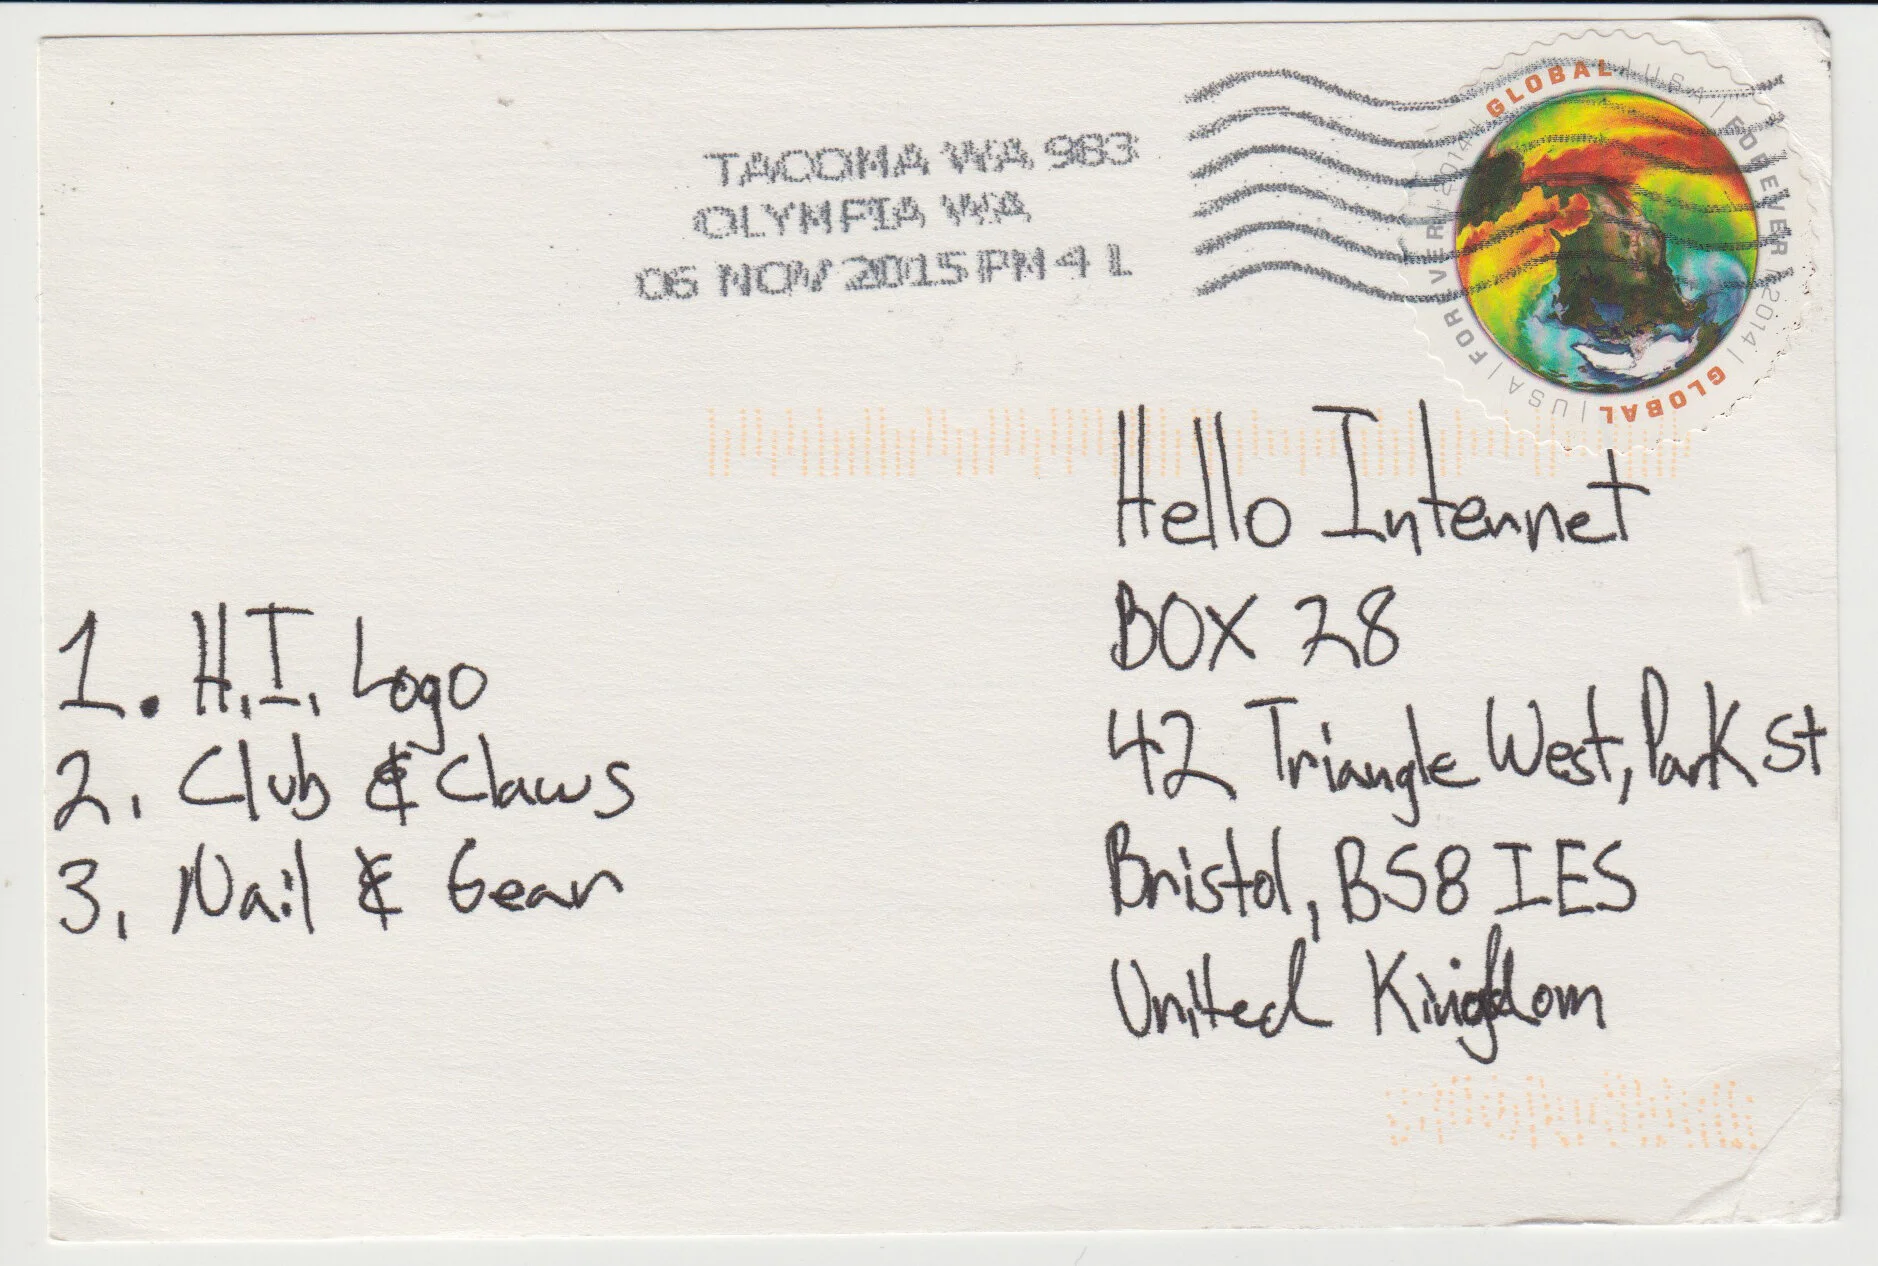 TACOMA WA 983
OLYMPIA WA
06 NOV 2015 PM 4 L
GLOBAL | USA | FOREVER / 2014 | GLOBAL | USA | FOREVER / 2014 |
Hello Internet
BOX 28
42 Triangle West, Park St
Bristol, BS8 1ES
United Kingdom
1. H.I. Logo
2. Club & Claws
3. Nail & Gear